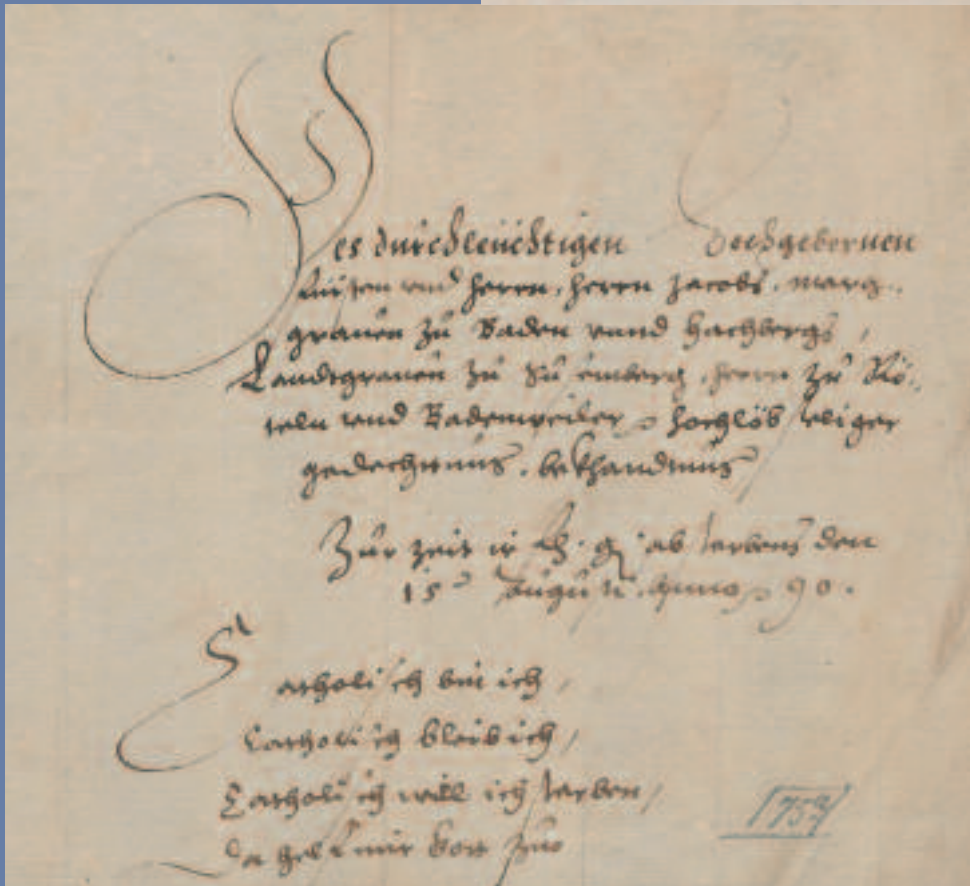 Des durchleüchtigen Hochgebornen
Fürsten vnd Herrn, Herrn Jacobs, marg-
grauen zů Baden vnnd Hachbergs,
Landtgrauen zů Susenberg, Herrn zů Rö-
teln vnnd Badenweiler, hochlöb seliger
gedechtnus, bekhandtnus
Zur zeit ir g. absterbens den
15 Augusti Anno 90.
Catholisch bin ich,
Catholisch bleib ich,
Catholisch will ich sterben,
Da helf mir Gott zuo
175